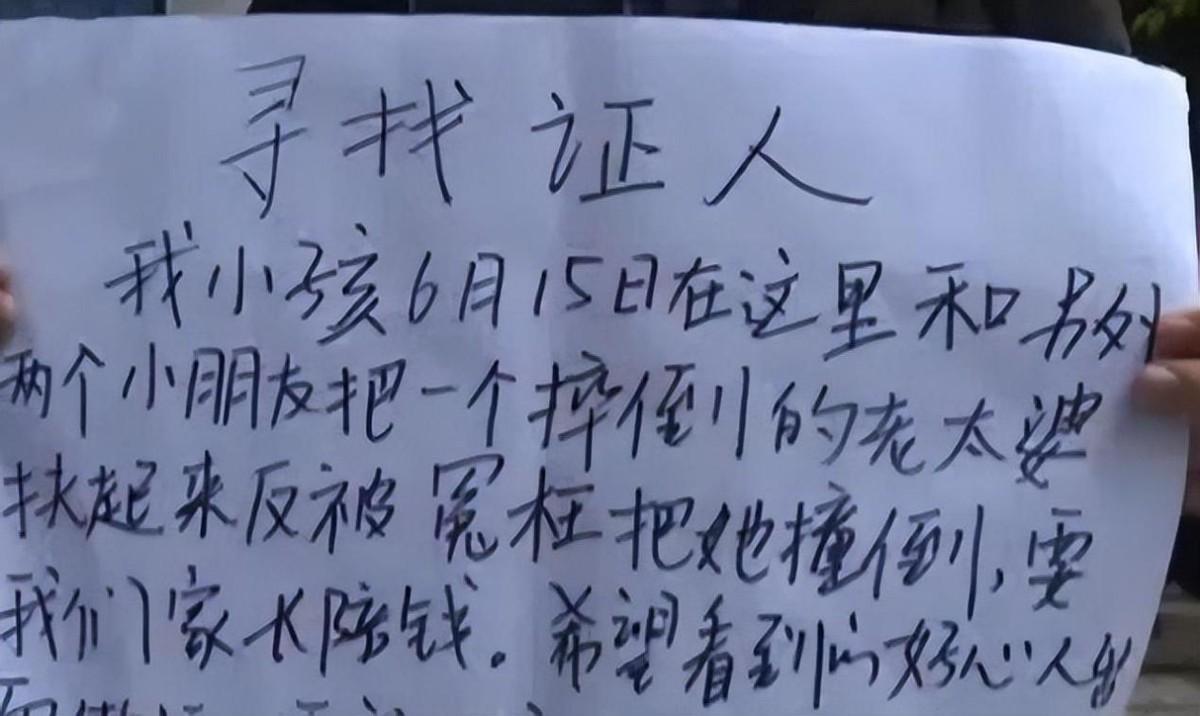 寻找证人
我小孩6月15日在这里和另外
两个小朋友把一个摔倒的老太婆
扶起来反被冤枉把她撞倒,要
我们家长陪钱。希望看到的好心人出